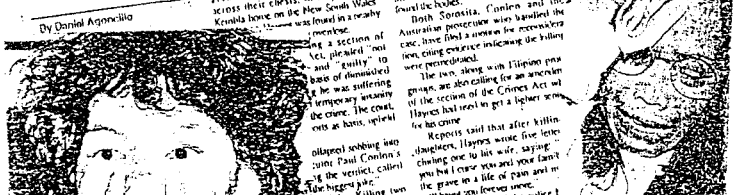 By Daniel Agoncillo
across their chests,
Kembla home on the New South Wales
was found in a nearby
ing a section of
Act, pleaded "not
and "guilty" to
basis of diminished
g he was suffering
temporary insanity
the crime. The court,
orts as basis, upheld
ollapsed sobbing into
cutor Paul Conlon's
ng the verdict, called
the biggest joke."
Killing two
found the bodies.
Both Sorosita, Conlon and the
Australian prosecutor who handled the
case, have filed a motion for reconsidera
tion, citing evidence indicating the killing
were premeditated.
The two, along with Filipino
groups, are also calling for an amendm
of the section of the Crimes Act wh
Haynes had used to get a lighter sente
for his crime.
Reports said that after killin
daughters, Haynes wrote five letter
cluding one to his wife, saying:
you but I curse you and your famil
the grave in a life of pain and m
you forever more.